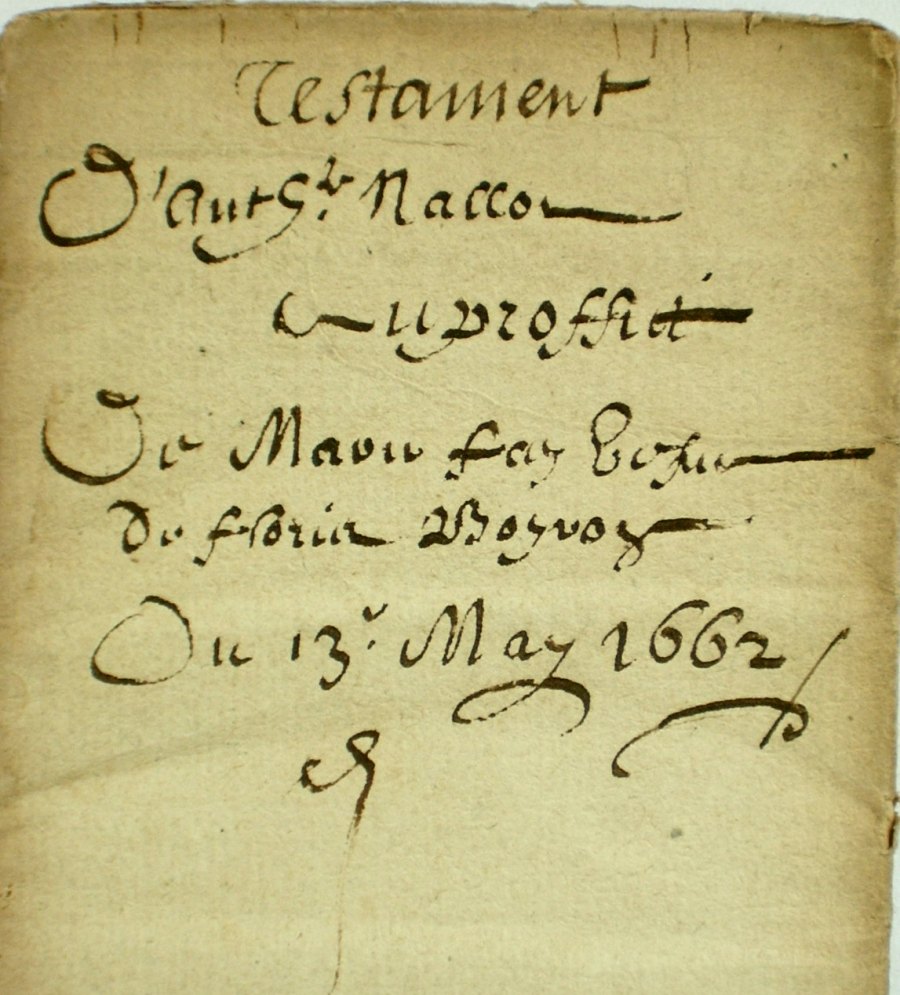 Testament
D'Anth.e Nallon
Au proffict
De Marie fay vefue
De floris Boyron
Du 13.e May 1662